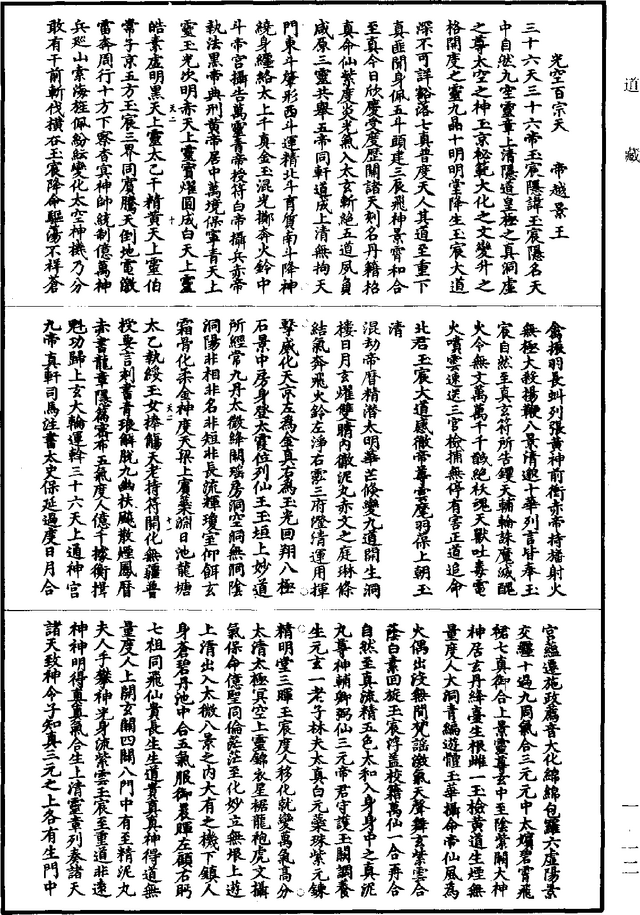 道藏
一・一一二
光空百宗天　帝越景王
三十六天三十六帝玉宸隱諱玉宸隱名天
中自然九室靈章上清隱道皇極之真洞虛
之尊太空之神玉京秘範大化之文變升之
格開度之靈九品十明明堂降生玉宸大道
深不可詳豁落七真普度天人其道至重下
真匪聞身佩五斗頭建三辰飛神景霄和合
至真今日欣慶受度歷關諸天刻名丹籍拾
真命仙紫度炎光氣入太玄斬絕五道夙負
咸原三靈共舉五帝同軒道成上清無拘天
門東斗肇形西斗運精北斗育質南斗降神
繞身纏絡太上千真金玉混光擲奔火鈴中
斗帝宮攝告萬靈青帝授符白帝攝兵赤帝
執法黑帝典刑黃帝居中萬境保寧青天上
靈玉光次明赤天上靈寶燿圓成白天上靈
皓素虛明黑天上靈太乙千精黃天上靈伯
常子京五方玉宸三界同賓騰天倒地電激
雷奔周行十方下察杳冥神師統制億萬神
兵巡山索海狂佩紛紜變化太空神機乃分
敢有干前斬伐橫夭玉宸降命驅蕩不祥蒼
禽振羽長虯列張黃神前衛赤帝持幡射火
無極大殺揚鞭八景清遨十華列言皆奉玉
宸自然至真玄符所告鑊天輔輪誅魔滅醜
火令無文萬萬千千戮絕妖魂天獸吐毒電
火噴雲速送三官檢捕無停有害正道追命
北君玉宸大道感徹帝尊雲麾羽保上朝玉
清
混劫帝曆精潛太明華芒倏變九道開生洞
樓日月玄燿雙睛內徹泥丸赤文之庭琳條
結氣奔飛火鈴左淨右雲三府澄清運用揮
擊威化天京左為金真右為玉光回翔八極
石景中房身登太霞位列仙王玉垣上妙道
所經常九丹太微絳闕瑤房洞空洞無洞陰
洞陽非相非名非短非長流輝瓊室仰餌玄
霜骨化柔金神度天梁上賓蘂淵日池龍塘
太乙執綏玉女捧觴天老持符開化無疆普
授要言刺書青琅解脫九幽扶颷散煙鳳曆
赤書龍章隱篇密布五氣度人億千據衡揖
魁功歸上玄大輪運斡三十六天上通神宮
九帝真軒司馬注書太史保延過度日月合
宮經遷施政篤音大化綿綿包羅六虛陽景
交纏十過九周氣合三元元中太壞碧霄飛
裙七真御合上景靈尊玄中至陰紫闕大神
神居玄丹絳臺生根雌一玉檢黃道生煙無
量度人大洞青編遊體玉華攝命帝仙風為
火偶出沒無間梵謠激氣天聲舞玄紫雲合
蔭白素回旋玉宸浮蓋校籍萬仙一合再合
自然至真流精五色太和入身身中之真泥
九尊神輔卿弼仙三元帝君守護玉關調養
生元玄一老子林夫太真白元藥珠紫元鍊
精明堂三暉玉宸度人移化就變萬氣高分
太清太極冥空上靈錦衣星裾龍袍虎文攝
氣保命億聖同倫茫茫至化妙立無垠上遊
上清出入太微八景之內大有之機下鎮人
身蒼碧丹池中合五氣服御晨暉左顧右眄
七祖同飛仙貴長生生道貴真真神得道無
量度人上開玄關四闢八門中有至精泥丸
夫人手攀神光身流紫雲玉宸至重道非遠
神神明得真真氣合生上清靈章列奏諸天
諸天致神令子知真三元之上各有生門中